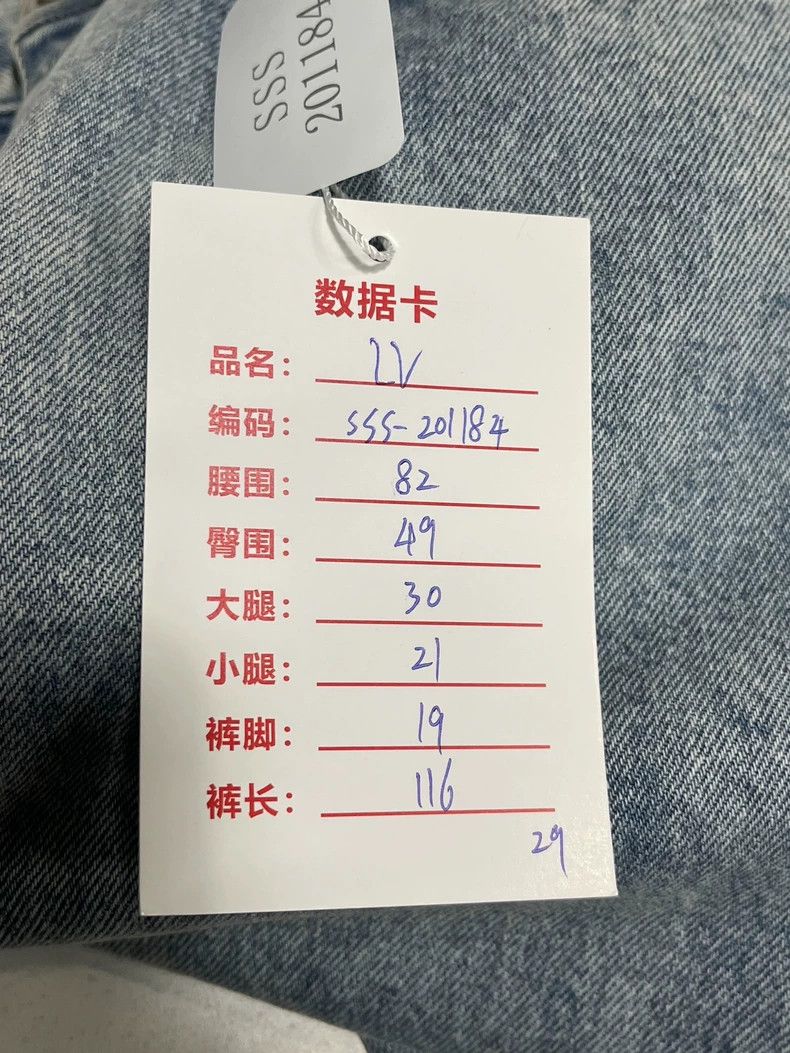 SSS
201184
数据卡
品名: LV
编码: SSS-201184
腰围: 82
臀围: 49
大腿: 30
小腿: 21
裤脚: 19
裤长: 116
29